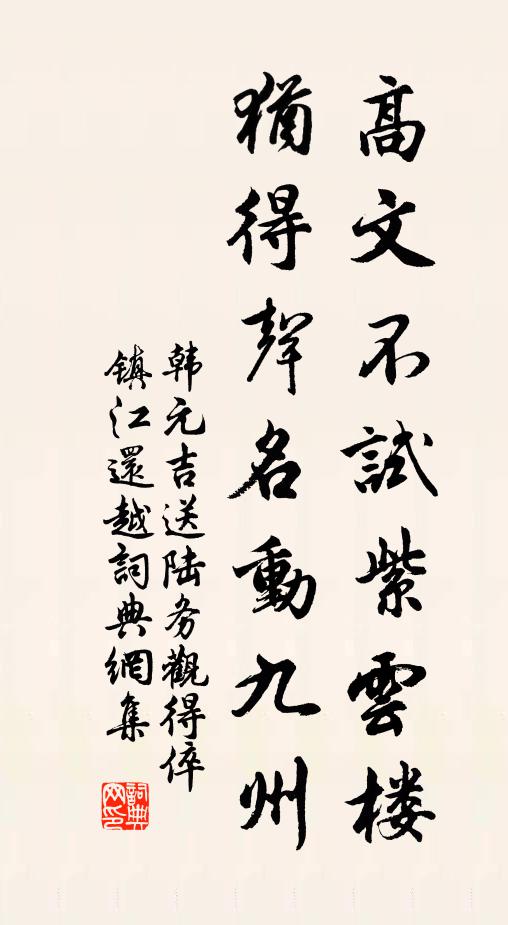 高文不試紫雲楼
猶得聲名動九州
韩元吉送陆务觀得倅
镇江還越詞典網集
詞典网印